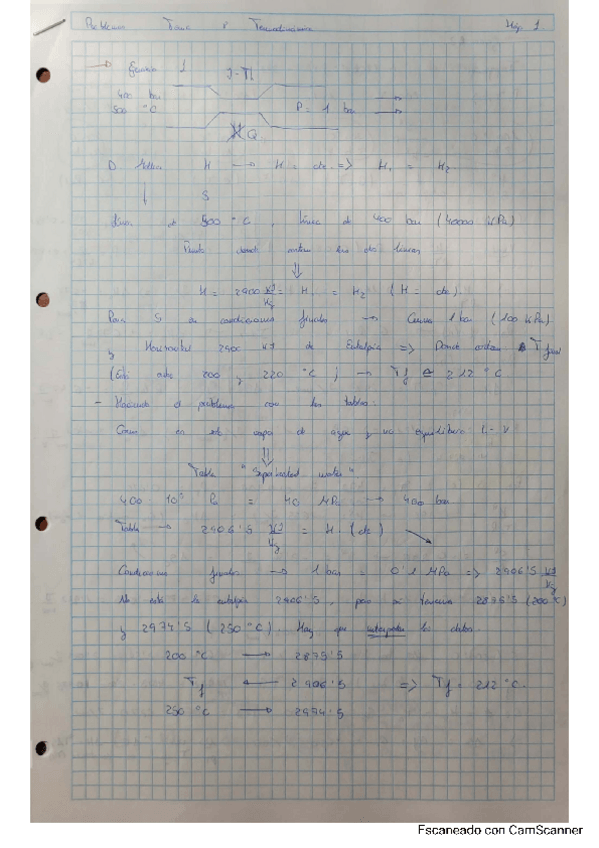 Problemas Tema Termodinámica Hoja 1
→ Ejercicio 1 J-T
400 bar
500 °C P = 1 bar
Q
D. Mollier H → H = cte => H₁ = H₂
↓ S
Línea de 500 °C, línea de 400 bar (40000 KPa)
Punto donde cortan las dos líneas
⇓
H = 2900 KJ/Kg = H₁ = H₂ (H = cte).
Para S a condiciones finales → Curva 1 bar (100 KPa)
y Horizontal 2900 KJ de Entalpía => Donde cortan T final
(Está entre 200 y 220 °C) → Tf ≅ 212 °C
- Haciendo el problema con las tablas:
Como es solo vapor de agua y no equilibrio L-V
⇓
Tabla "Superheated water"
400·10⁵ Pa = 40 MPa → 400 bar
Tabla → 2906'5 KJ/Kg = H. (cte)
Condiciones finales → 1 bar = 0'1 MPa => 2906'5 KJ/Kg
No está la entalpía 2906'5, pero si tenemos 2875'5 (200 °C)
y 2974'5 (250 °C). Hay que interpolar los datos.
200 °C → 2875'5
Tf ← 2906'5 => Tf = 212 °C.
250 °C → 2974'5
Escaneado con CamScanner